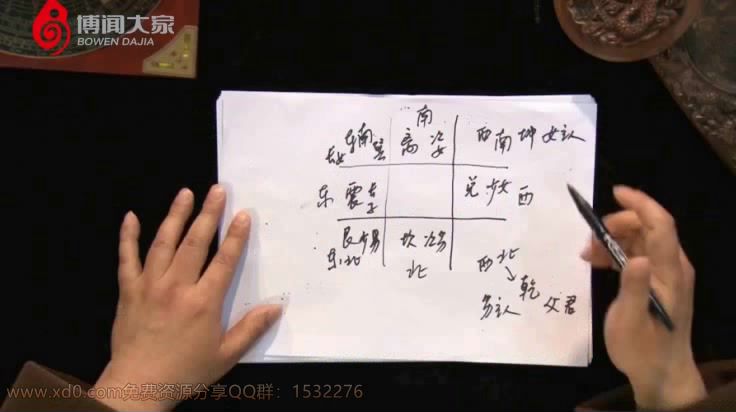 博闻大家
BOWEN DAJIA
南
长女 东南 巽
离 次女
西南 坤 女主人
东 震 长子
兑 少女 西
艮 少男
东北
坎 次男
北
西北
乾 父君
男主人
www.xd0.com免费资源分享QQ群：1532276